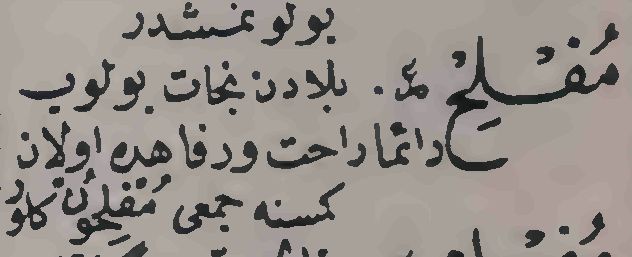 بولونمشدر
مُفْلِحْ عر. بلادن نجات بولوب
دائما راحت ورفاهده اولان
كمسنه جمعى مُفْلِحُونْ كلور